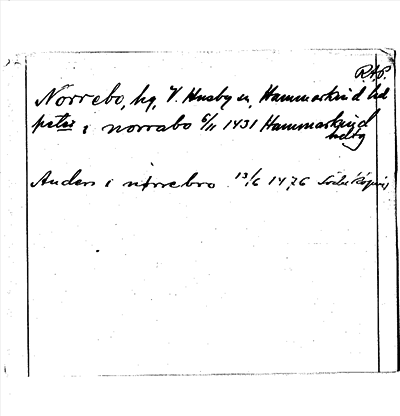 R.A.P.
Norrebo, hg, V. Husby sn, Hammarkind hd
peter i norrabo 6/11 1431 Hammarkind
hdtg
Anders i nörrebro 13/6 1476 Söderköping